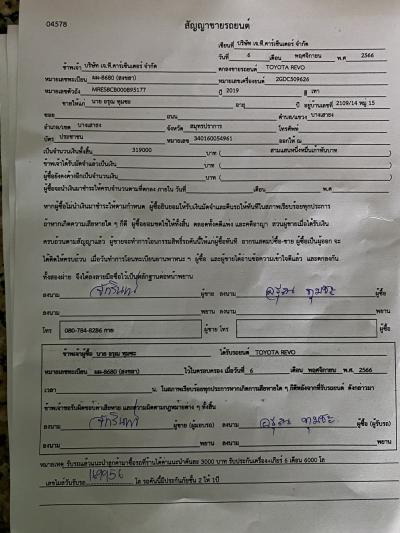 04578
สัญญาขายรถยนต์
เขียนที่ บริษัท เจ.ที.คาร์เซ็นเตอร์ จำกัด
วันที่ 6 เดือน พฤศจิกายน พ.ศ 2566
ข้าพเจ้า บริษัท เจ.ที.คาร์เซ็นเตอร์ จำกัด ตกลงขายรถยนต์ TOYOTA REVO
หมายเลขทะเบียน ผผ-8680 (สงขลา) หมายเลขเครื่องยนต์ 2GDC509626
หมายเลขตัวถัง MRE58CB000895177 ปี 2019 สี เทา
ขายให้แก่ นาย อรุณ ทุมชะ อายุ ปี อยู่บ้านเลขที่ 2109/14 หมู่ 15
ซอย ถนน ตำบล/แขวง บางเสาธง
อำเภอ/เขต บางเสาธง จังหวัด สมุทรปราการ โทรศัพท์
บัตร ประชาชน หมายเลข 340160054961 ออกให้ ณ
เป็นจำนวนเงินทั้งสิ้น 319000 บาท ( สามแสนหนึ่งหมื่นเก้าพันบาท )
ข้าพเจ้าได้รับมัดจำแล้วเป็นเงิน บาท ( )
ผู้ซื้อยังคงค้างอีกเป็นจำนวนเงิน บาท ( )
ผู้ซื้อจะนำเงินมาชำระให้ครบจำนวนตามที่ตกลง ภายใน วันที่ เดือน พ.ศ
หากผู้ซื้อไม่นำเงินมาชำระให้ตามกำหนด ผู้ซื้อยินยอมให้รับเงินมัดจำและคืนรถให้ทันทีในสภาพเรียบร้อยทุกประการ
ถ้าหากเกิดความเสียหายใด ๆ ก็ดี ผู้ซื้อยอมชดใช้ให้ทั้งสิ้น ตลอดทั้งคดีแพ่ง และคดีอาญา ส่วนผู้ขายเมื่อได้รับเงิน
ครบถ้วนตามสัญญาแล้ว ผู้ขายจะทำการโอนกรรมสิทธิ์รถคันนี้ให้แก่ผู้ซื้อทันที อากรแสตมป์ซื้อ-ขาย ผู้ซื้อเป็นผู้ออก จะ
ได้คิดให้ครบถ้วน เมื่อวันทำการโอนทะเบียนยานพาหนะ ฯ ผู้ซื้อ และผู้ขายได้อ่านข้อความเข้าใจดีแล้ว และตกลงกัน
ทั้งสองฝ่าย จึงได้ลงลายมือชื่อไว้เป็นหลักฐานต่อหน้าพยาน
ลงนาม ผู้ขาย ลงนาม อรุณ ทุมชะ ผู้ซื้อ
ลงนาม พยาน ลงนาม พยาน
โทร 080-784-8286 กาย ผู้ขาย โทร ผู้ซื้อ
ข้าพเจ้าผู้ซื้อ นาย อรุณ ทุมชะ ได้รับรถยนต์ TOYOTA REVO
หมายเลขทะเบียน ผผ-8680 (สงขลา) ไว้ในครอบครอง เมื่อวันที่ 6 เดือน พฤศจิกายน พ.ศ. 2566
เวลา น. ในสภาพเรียบร้อยทุกประการหากเกิดการเสียหายใด ๆ ก็ดีหลังจากที่รับรถยนต์ ดังกล่าวมา
ข้าพเจ้าขอรับผิดชอบค่าเสียหาย และความผิดตามกฎหมายต่าง ๆ ทั้งสิ้น
ลงนาม ผู้ขาย (ผู้มอบรถ) ลงนาม อรุณ ทุมชะ ผู้ซื้อ (ผู้รับรถ)
ลงนาม พยาน ลงนาม พยาน
หมายเหตุ รับรถแล้วแนะนำลูกค้ามาซื้อรถที่ร้านได้ค่าแนะนำคันละ 3000 บาท รับประกันเครื่อง+เกียร์ 6 เดือน 6000 โล
เลขไมล์วันรับรถ 169956 โล รถคันนี้มีประกันภัยชั้น 2 ให้ 1ปี